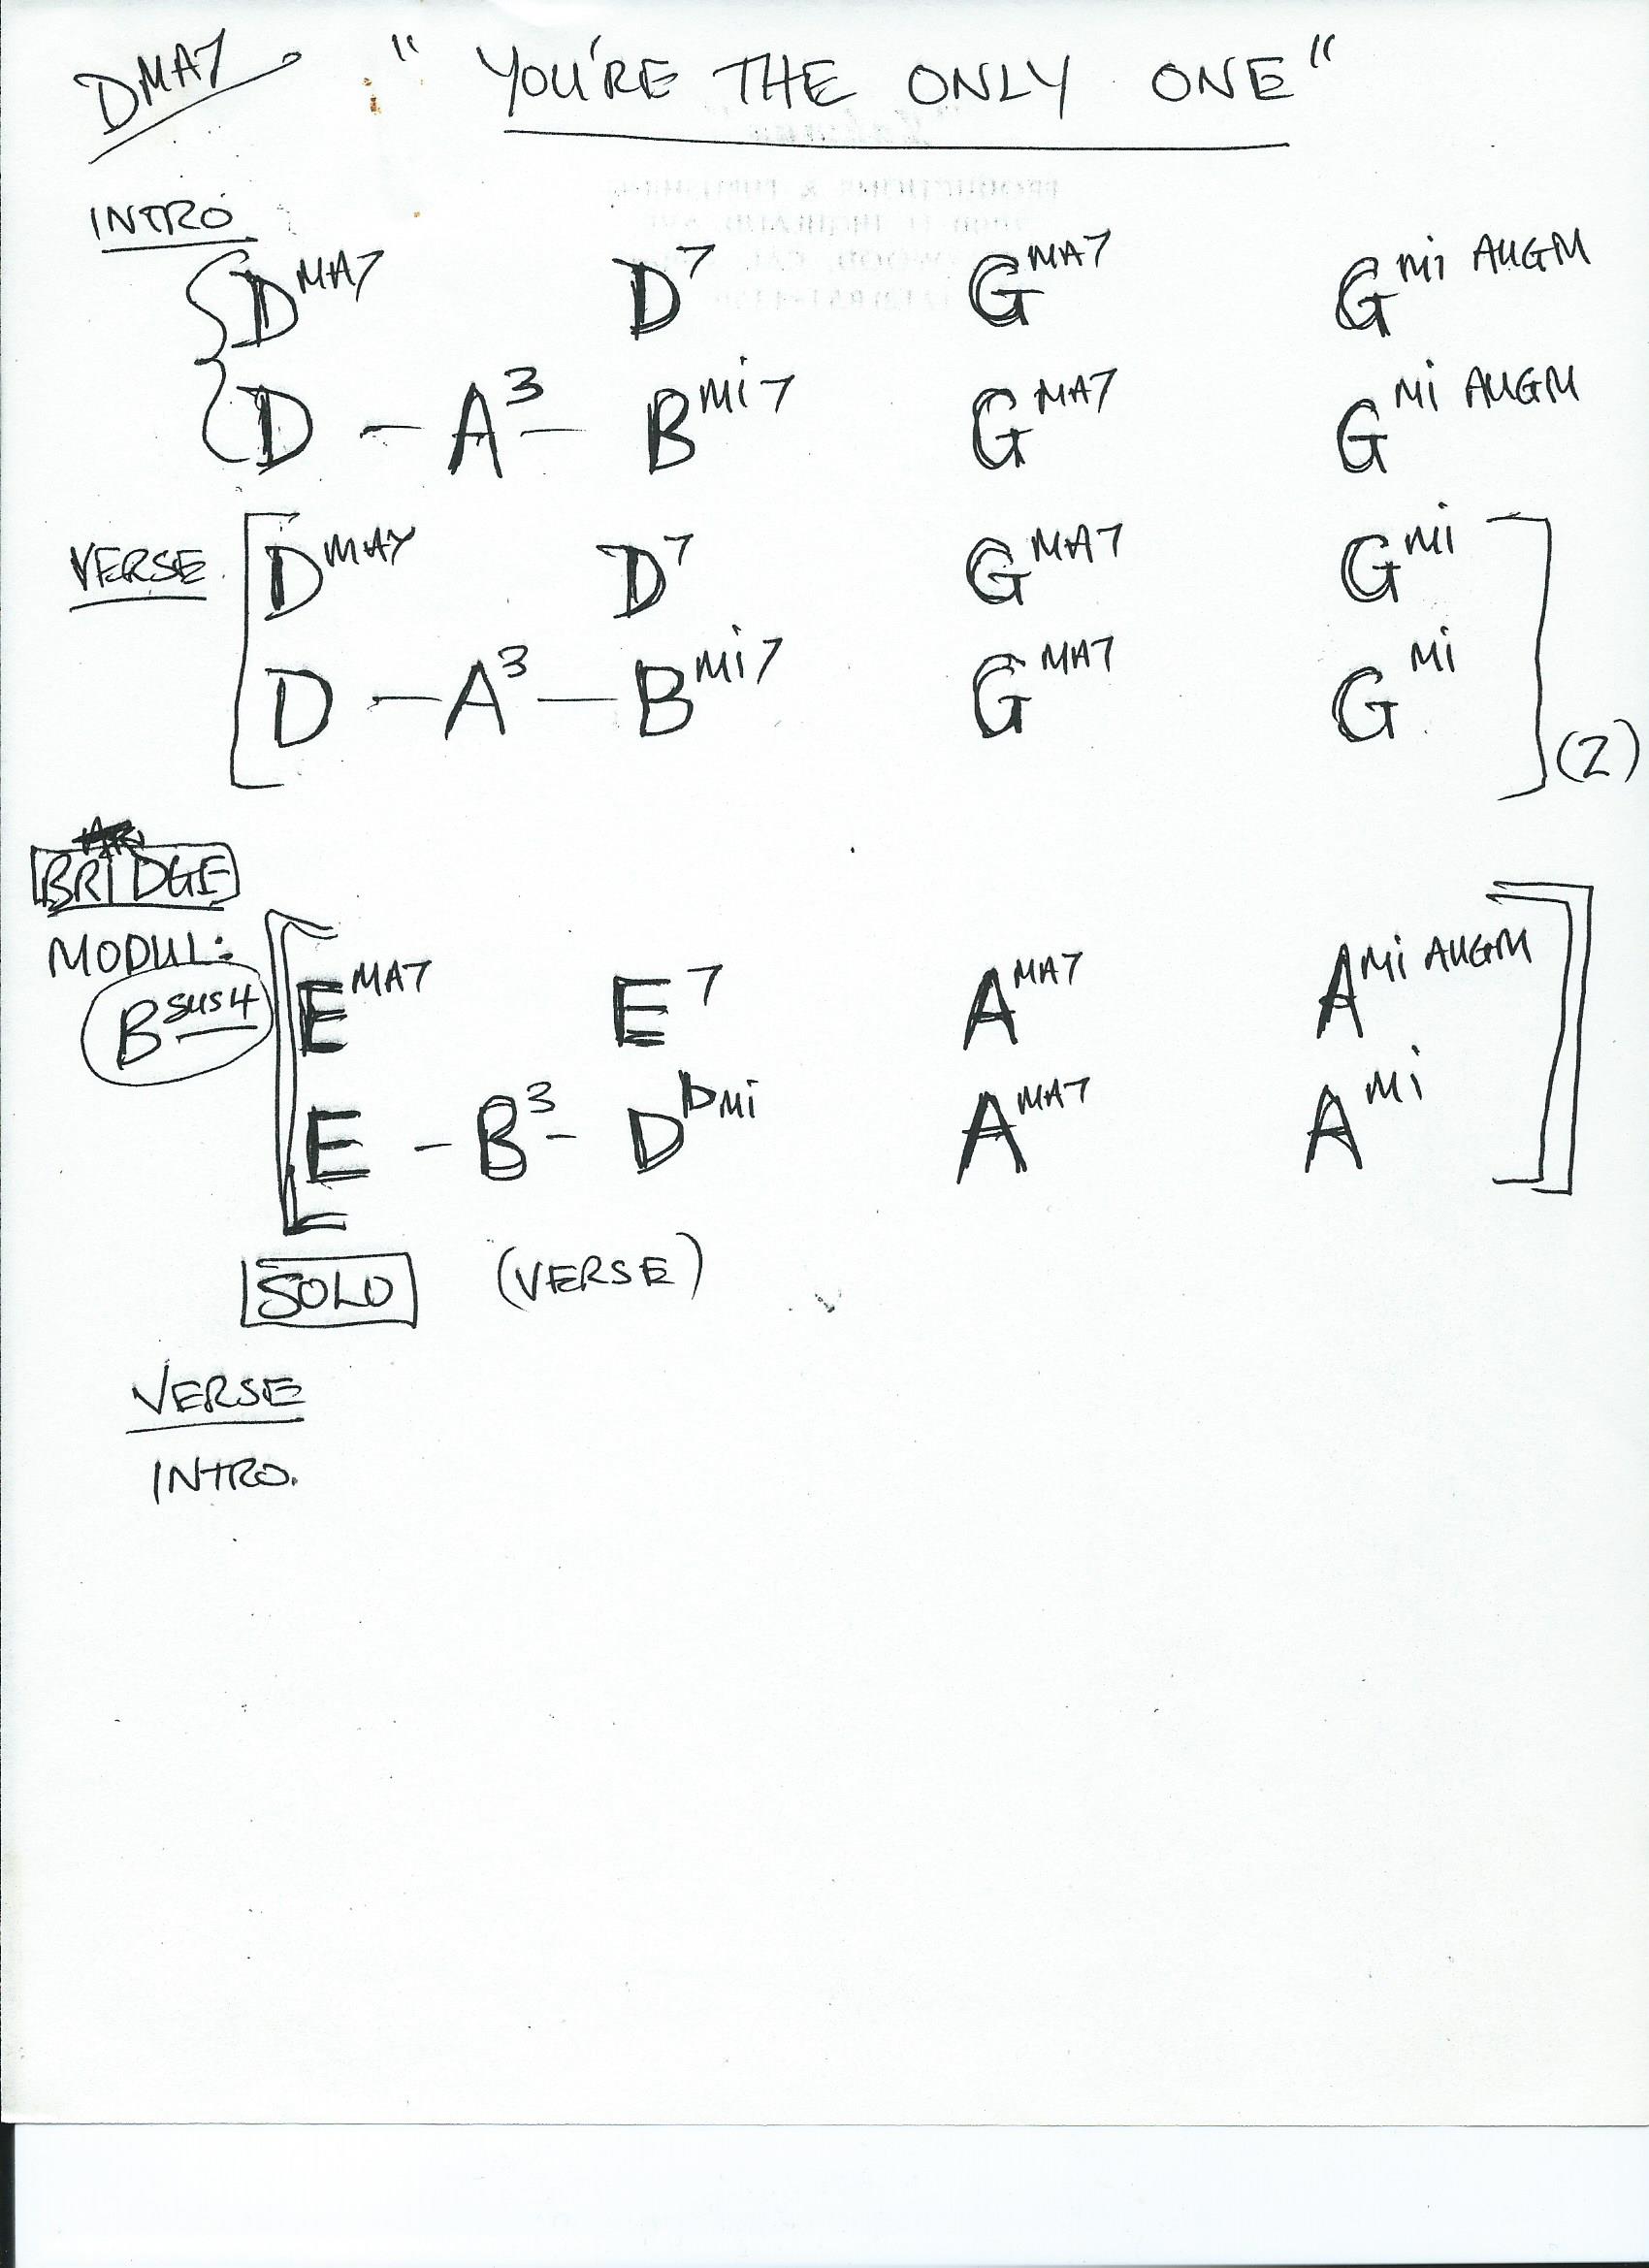 DMA7 " YOU'RE THE ONLY ONE "
INTRO
DMA7 D7 GMA7 Gmi AUGM
D - A3 - Bmi7 GMA7 Gmi AUGM
VERSE DMA7 D7 GMA7 Gmi
D - A3 - Bmi7 GMA7 Gmi (2)
BRIDGE
MODUL:
Bsus4 EMA7 E7 AMA7 Ami AUGM
E - B3 - Dbmi AMA7 Ami
SOLO (VERSE)
VERSE
INTRO.